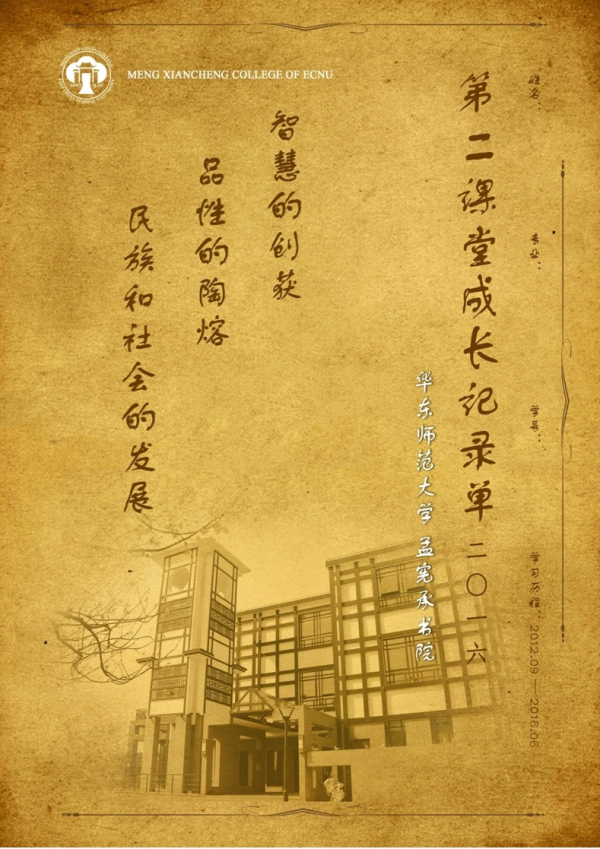 MENG XIANCHENG COLLEGE OF ECNU
姓名：
专业：
学号：
学习历程：2012.09—2016.06
第二课堂成长记录单二〇一六
华东师范大学 孟宪承书院
智慧的创获
品性的陶熔
民族和社会的发展